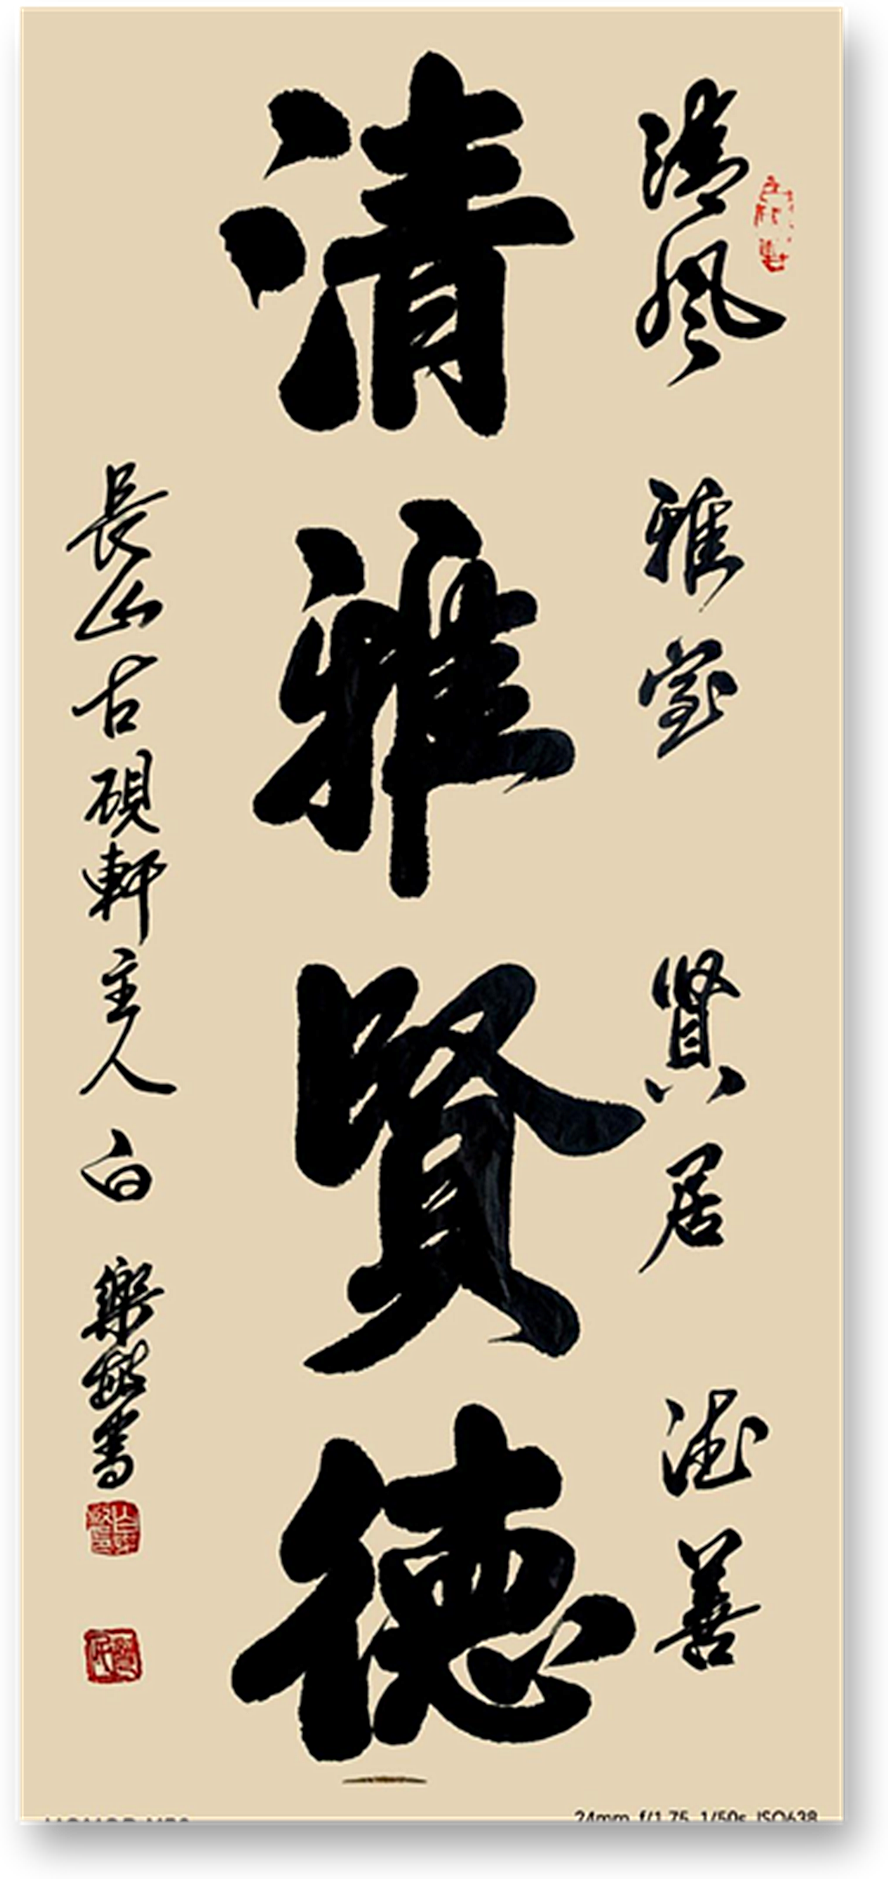 清風 雅室 賢居 德善
清雅賢德
長山古硯軒主人白樂
24mm f/1.75 1/50s ISO638